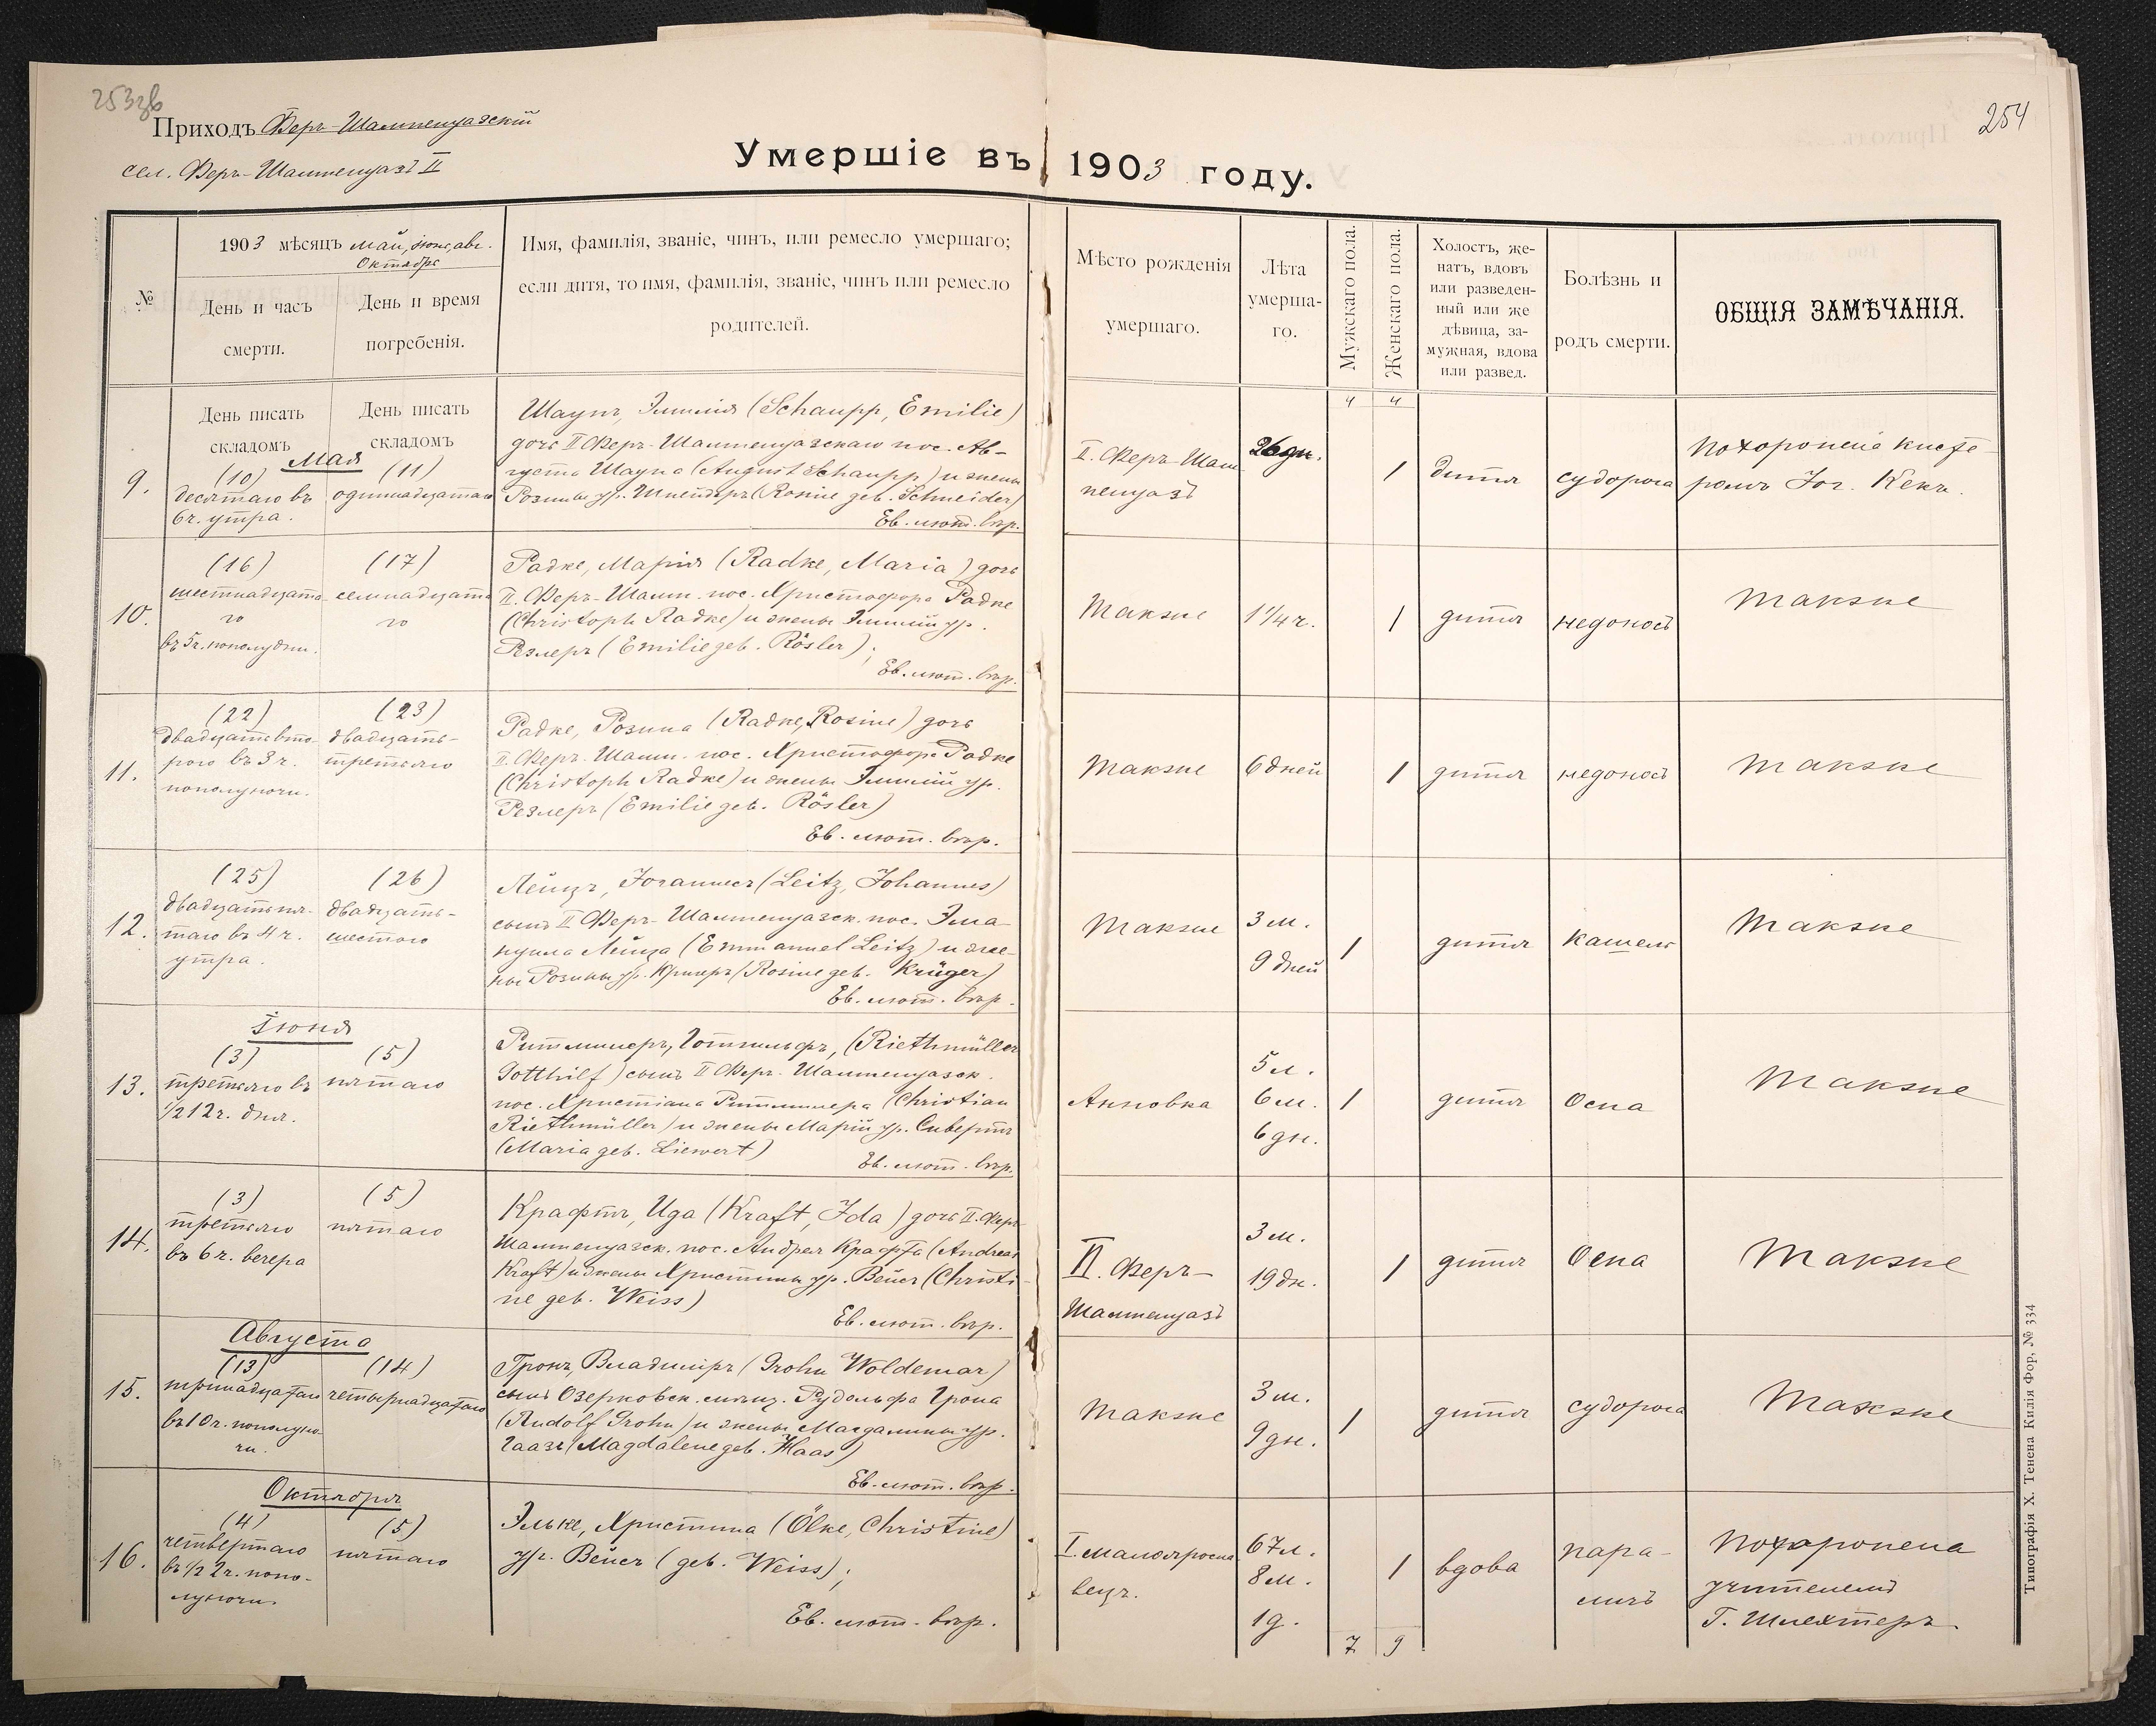 253 зв
254
Приходъ Феръ-Шампенуазскій
сел. Феръ-Шампенуазъ II
Умершіе въ 1903 году.
№
1903 мѣсяцъ май, іюнь, авг.
Октябрь
День и часъ
смерти.
День и время
погребенія.
Имя, фамилія, званіе, чинъ, или ремесло умершаго;
если дитя, то имя, фамилія, званіе, чинъ или ремесло
родителей.
Мѣсто рожденія
умершаго.
Лѣта
умерша-
го.
Мужскаго пола.
Женскаго пола.
Холостъ, же-
натъ, вдовъ
или разведен-
ный или же
дѣвица, за-
мужная, вдова
или развед.
Болѣзнь и
родъ смерти.
ОБЩІЯ ЗАМѢЧАНІЯ.
День писать
складомъ
День писать
складомъ
4 4
Мая
9.
(10)
десятаго въ
6 ч. утра.
(11)
одиннадцатаго
Шаупъ, Эмилія (Schaupp, Emilie)
дочь II Феръ-Шампенуазскаго пос. Ав-
густа Шаупа (August Schaupp) и жены
Розины ур. Шнейдеръ (Rosine geb. Schneider)
Ев. лют. вѣр.
II. Феръ-Шам-
пенуазъ
26 дн.
1
дитя
судорога
Похоронена кисте-
ромъ Іог. Кекъ.
10.
(16)
шестнадцата-
го
въ 5 ч. пополудни.
(17)
семнадцата
го
Радке, Марія (Radke, Maria) дочь
II. Феръ-Шамп. пос. Христофора Радке
(Christoph Radke) и жены Эмиліи ур.
Рэзлеръ (Emilie geb. Rösler);
Ев. лют. вѣр.
Также
1 1/4 ч.
1
дитя
недонос
Также
11.
(22)
двадцать вто-
рого въ 3 ч.
пополуночи.
(23)
двадцать-
третьяго
Радке, Розина (Radke, Rosine) дочь
II. Феръ-Шамп. пос. Христофора Радке
(Christoph Radke) и жены Эмиліи ур.
Резлеръ (Emilie geb. Rösler)
Ев. лют. вѣр.
Также
6 дней
1
дитя
недонос
Также
12.
(25)
двадцать пя-
таго въ 4 ч.
утра.
(26)
двадцать-
шестого
Лейцъ, Іоганнесъ (Leitz, Johannes)
сынъ II Феръ-Шампенуазск. пос. Эма-
нуила Лейца (Emmanuel Leitz) и же-
ны Розины ур. Кригеръ (Rosine geb. Krüger)
Ев. лют. вѣр.
Также
3 м.
9 дней
1
дитя
кашель
Также
Іюня
13.
(3)
третьяго въ
1/2 12 ч. дня.
(5)
пятаго
Ритмиллеръ, Готгильфъ, (Riethmüller
Gotthilf) сынъ II Феръ-Шампенуазск.
пос. Христіана Ритмиллера (Christian
Riethmüller) и жены Маріи ур. Сивертъ
(Maria geb. Siewert)
Ев. лют. вѣр.
Анновка
5 л.
6 м.
6 дн.
1
дитя
Оспа
Также
14.
(3)
третьяго
въ 6 ч. вечера
(5)
пятаго
Крафтъ, Ида (Kraft, Ida) дочь II. Феръ-
Шампенуазск. пос. Андрея Крафта (Andreas
Kraft) и жены Христины ур. Вейсъ (Christi-
ne geb. Weiss)
Ев. лют. вѣр.
II. Феръ-
Шампенуазъ
3 м.
19 дн.
1
дитя
Оспа
Также
Августа
15.
(13)
тринадцатаго
въ 10 ч. пополуно-
чи.
(14)
четырнадцатаго
Гронъ, Владиміръ (Grohn Woldemar)
сынъ Озерковск. мѣщ. Рудольфа Грона
(Rudolf Grohn) и жены Магдалины ур.
Гаазъ (Magdalene geb. Haas)
Ев. лют. вѣр.
Также
3 м.
9 дн.
1
дитя
судорога
Также
Октября
16.
(4)
четвертаго
въ 1/2 2 ч. попо-
луночи.
(5)
пятаго
Эльке, Христина (Ölke, Christine)
ур. Вейсъ (geb. Weiss);
Ев. лют. вѣр.
I. Малояросла-
вецъ.
67 л.
8 м.
1 д.
1
вдова
пара-
личъ
Похоронена
учителемъ
Г. Шлехтеръ.
7 9
Типографія Х. Тенена Килія Фор, № 334